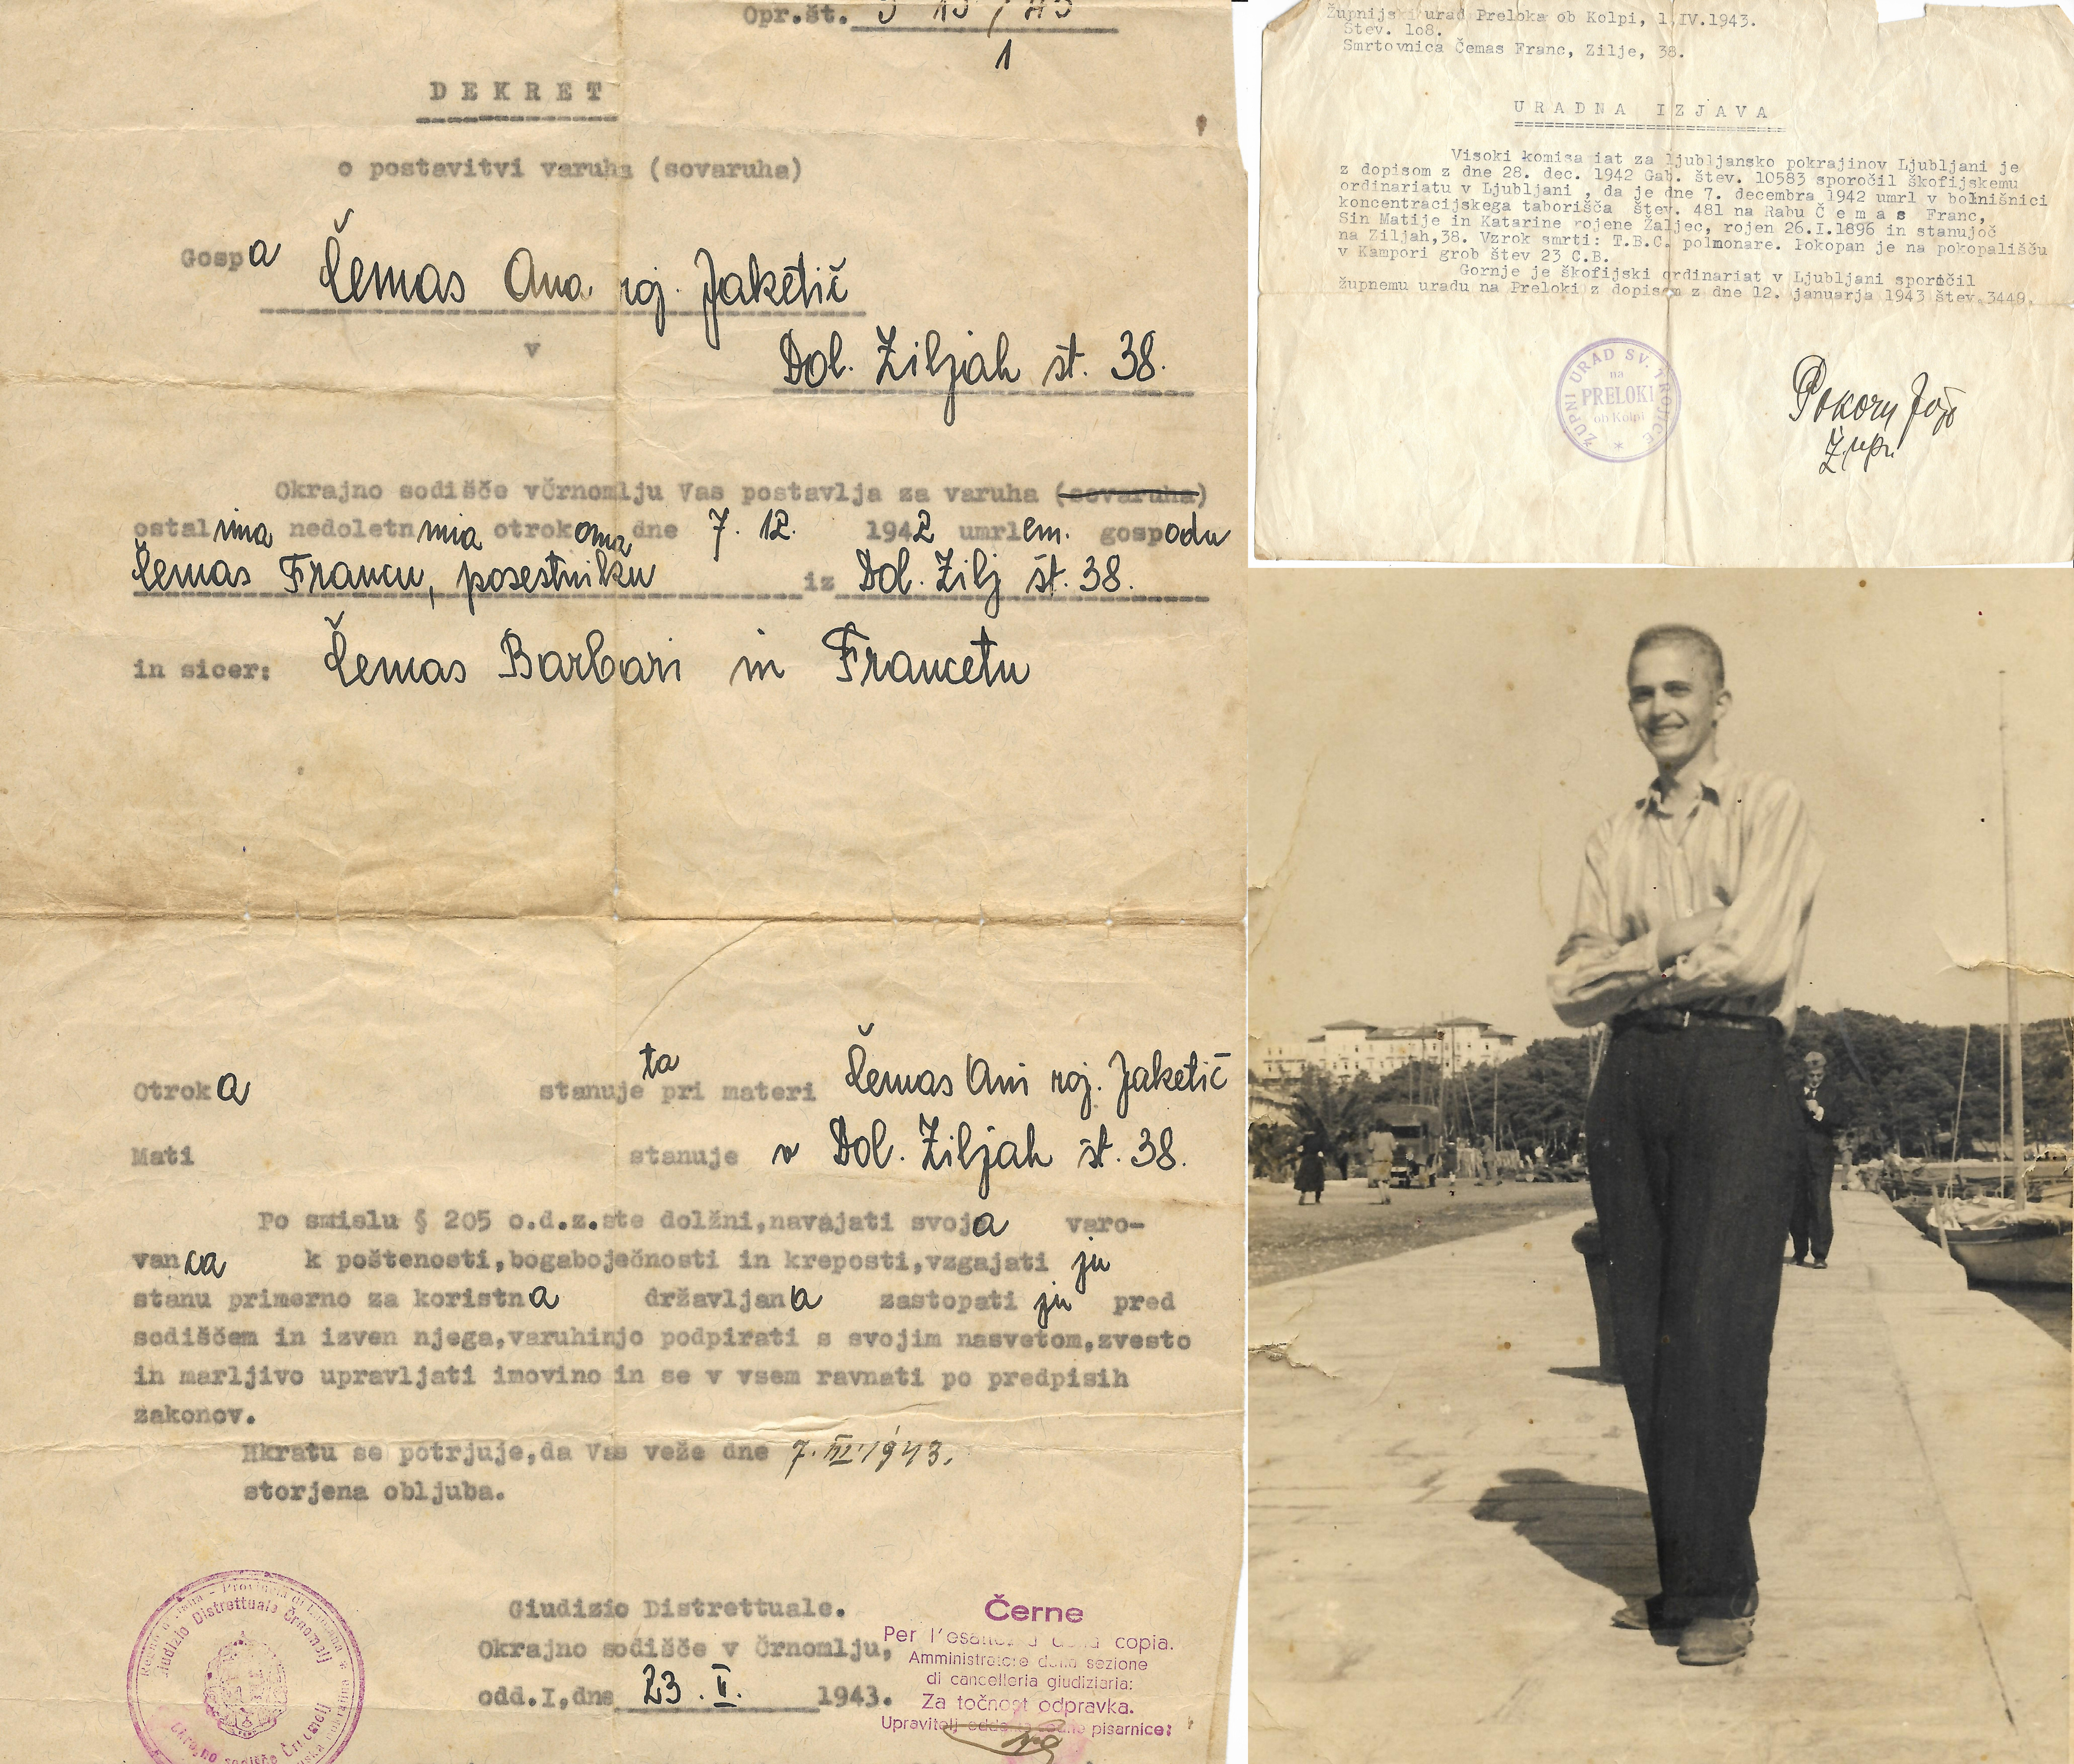 Opr.št.
1
DEKRET
o postavitvi varuha (sovaruha)
Gospa Čemas Ana roj. Jaketič
v Dol. Ziljah št. 38.
Okrajno sodišče vČrnomlju Vas postavlja za varuha (sovaruha)
ostalima nedoletnima otrokoma dne 7. 12. 1942 umrlem. gospodu
Čemas Francu, posestniku iz Dol. Zilj št. 38.
in sicer: Čemas Barbari in Francetu
Otroka stanujeta pri materi Čemas Ani roj. Jaketič
Mati stanuje v Dol. Ziljah št. 38.
Po smislu § 205 o.d.z.ste dolžni,navajati svoja varo-
vanca k poštenosti,bogaboječnosti in kreposti,vzgajati ju
stanu primerno za koristna državljana zastopati ju pred
sodiščem in izven njega,varuhinjo podpirati s svojim nasvetom,zvesto
in marljivo upravljati imovino in se v vsem ravnati po predpisih
zakonov.
Hkratu se potrjuje,da Vas veže dne 7. III. 1943.
storjena obljuba.
Giudizio Distrettuale.
Okrajno sodišče v Črnomlju,
odd.I,dne 23. II. 1943.
Giudizio Distrettuale Črnomelj
Okrajno sodišče Črnomelj
Černe
Per l'esattezza della copia.
Amministratore della sezione
di cancelleria giudiziaria:
Za točnost odpravka.
Upravitelj pisarnice:
Župnijski urad Preloka ob Kolpi, 1.IV.1943.
Štev. 108.
Smrtovnica Čemas Franc, Zilje, 38.
URADNA IZJAVA
Visoki komisa iat za ljubljansko pokrajinov Ljubljani je
z dopisom z dne 28. dec. 1942 Gab. štev. 10583 sporočil škofijskemu
ordinariatu v Ljubljani , da je dne 7. decembra 1942 umrl v bolnišnici
koncentracijskega taborišča štev. 481 na Rabu Č e m a s Franc,
Sin Matije in Katarine rojene Žaljec, rojen 26.I.1896 in stanujoč
na Ziljah,38. Vzrok smrti: T.B.C. polmonare. Pokopan je na pokopališču
v Kampori grob štev 23 C.B.
Gornje je škofijski ordinariat v Ljubljani sporočil
župnemu uradu na Preloki z dopisom z dne 12. januarja 1943 štev.3449.
ŽUPNI URAD SV. TROJICE
na
PRELOKI
ob Kolpi
Pokorn Jože
župn.